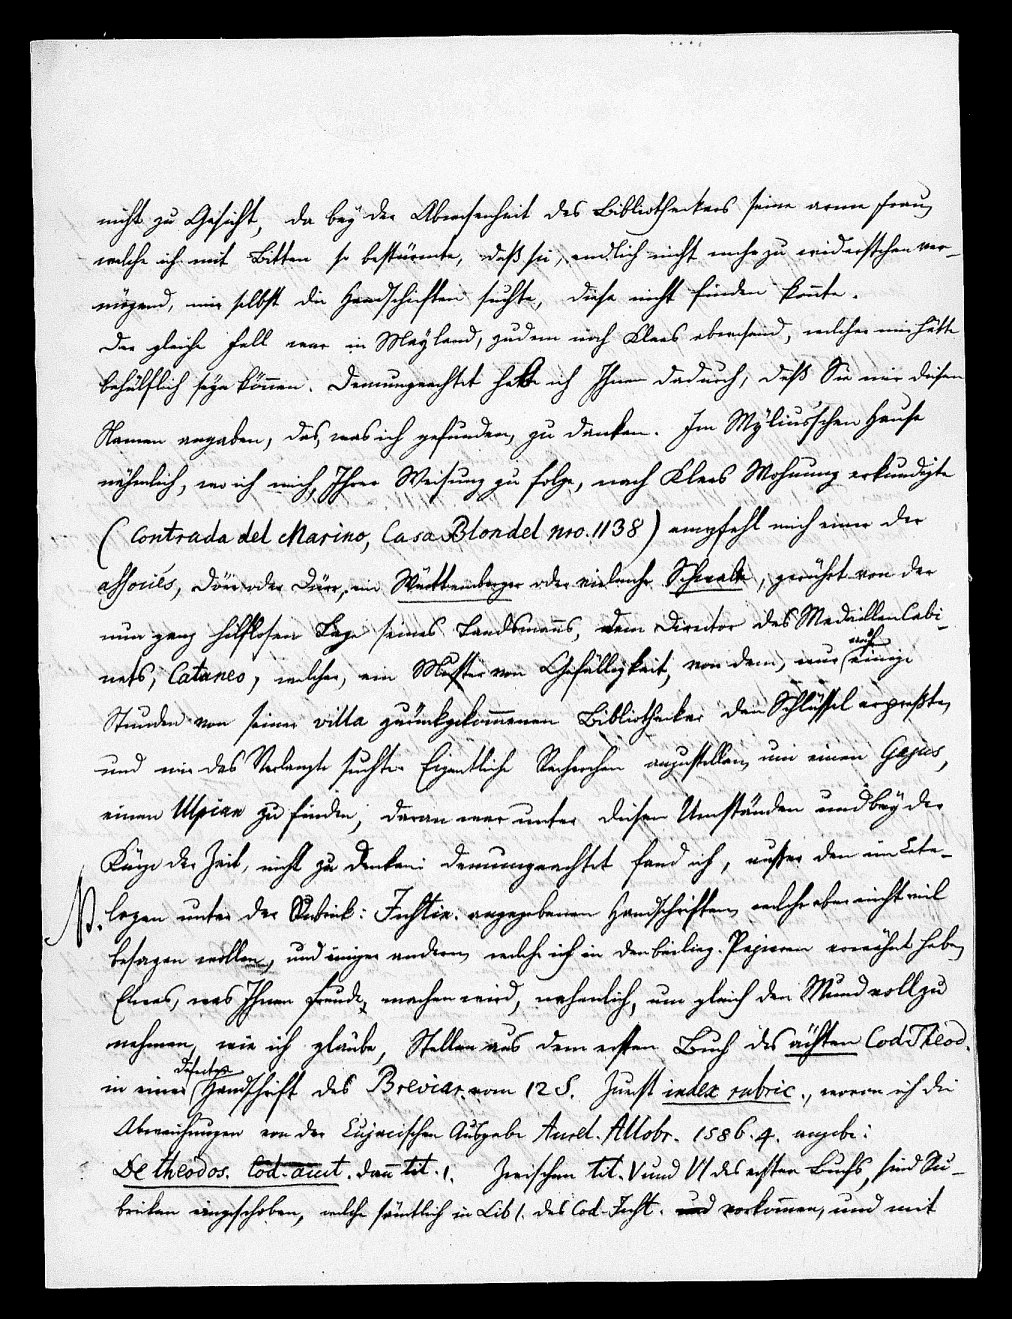 nicht zu Gesicht, da bey der Abwesenheit des Bibliothekars seine arme Frau,
welche ich mit Bitten so bestürmte, daß sie, endlich nicht mehr zu widerstehen ver-
mögend, mir selbst die Handschriften suchte, diese nicht finden konnte.
Der gleiche Fall war in Mayland, zudem noch Klees abwesend, welcher mir hätte
behülflich seyn können. Demungeachtet habe ich Ihnen dadurch, daß Sie mir diesen
Namen angaben, das, was ich gefunden, zu danken. Im Mylius'schen Hause
nähmlich, wo ich mich, Ihrer Weisung zu folge, nach Klees Wohnung erkundigte
(Contrada del Marino, Casa Blondel nro. 1138) empfahl mich einer der
associés, Dörr oder Dürr, ein Württemberger oder vielmehr Schwabe, gerührt von der
nun ganz hilflosen Lage seines Landsmanns, dem Director des Medaillencabi-
nets, Cataneo, welcher, ein Muster von Gefälligkeit, von dem, nur auf einige
Stunden von seiner villa zurückgekommenen Bibliothekar den Schlüssel erpreßte,
und mir das Verlangte suchte. Eigentliche Recherchen anzustellen, um einen Gajus,
einen Ulpian zu finden, daran war unter diesen Umständen und bey der
Kürze der Zeit, nicht zu denken: demungeachtet fand ich, ausser den im Cata-
NB. logen unter der Rubrik: Justin. angegebenen Handschriften, welche aber nicht viel
besagen wollen, und einigen andern, welche ich in den beilieg. Papieren erwähnt habe,
Etwas, was Ihnen Freude machen wird, nehmlich, um gleich den Mund voll zu
nehmen, wie ich glaube, Stellen aus dem ersten Buch des ächten Cod. Theod.
in einer defecten Handschrift des Breviar. vom 12 S. Zuerst index rubric., wovon ich die
Abweichungen von der Cujacischen Ausgabe Aurel. Allobr. 1586. 4. angebe:
De theodos. Cod. auct. dann tit. 1. Zwischen tit. V und VI des ersten Buchs, sind Ru-
briken eingeschoben, welche sämtlich in Lib 1. des Cod. Just. vorkommen, und mit